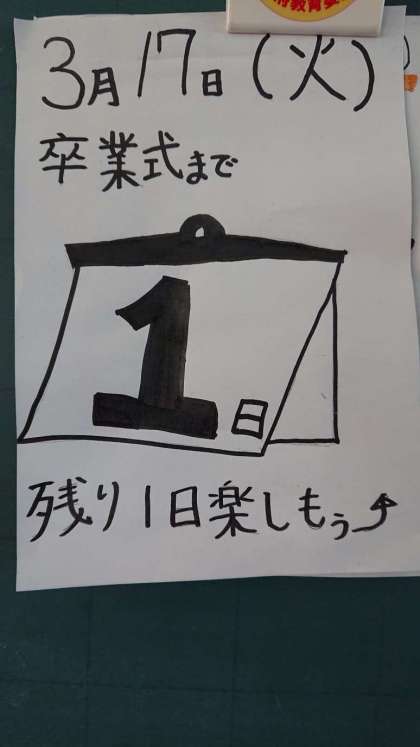 府教育委
3月17日(火)
卒業式まで
1日
残り1日楽しもう⤴